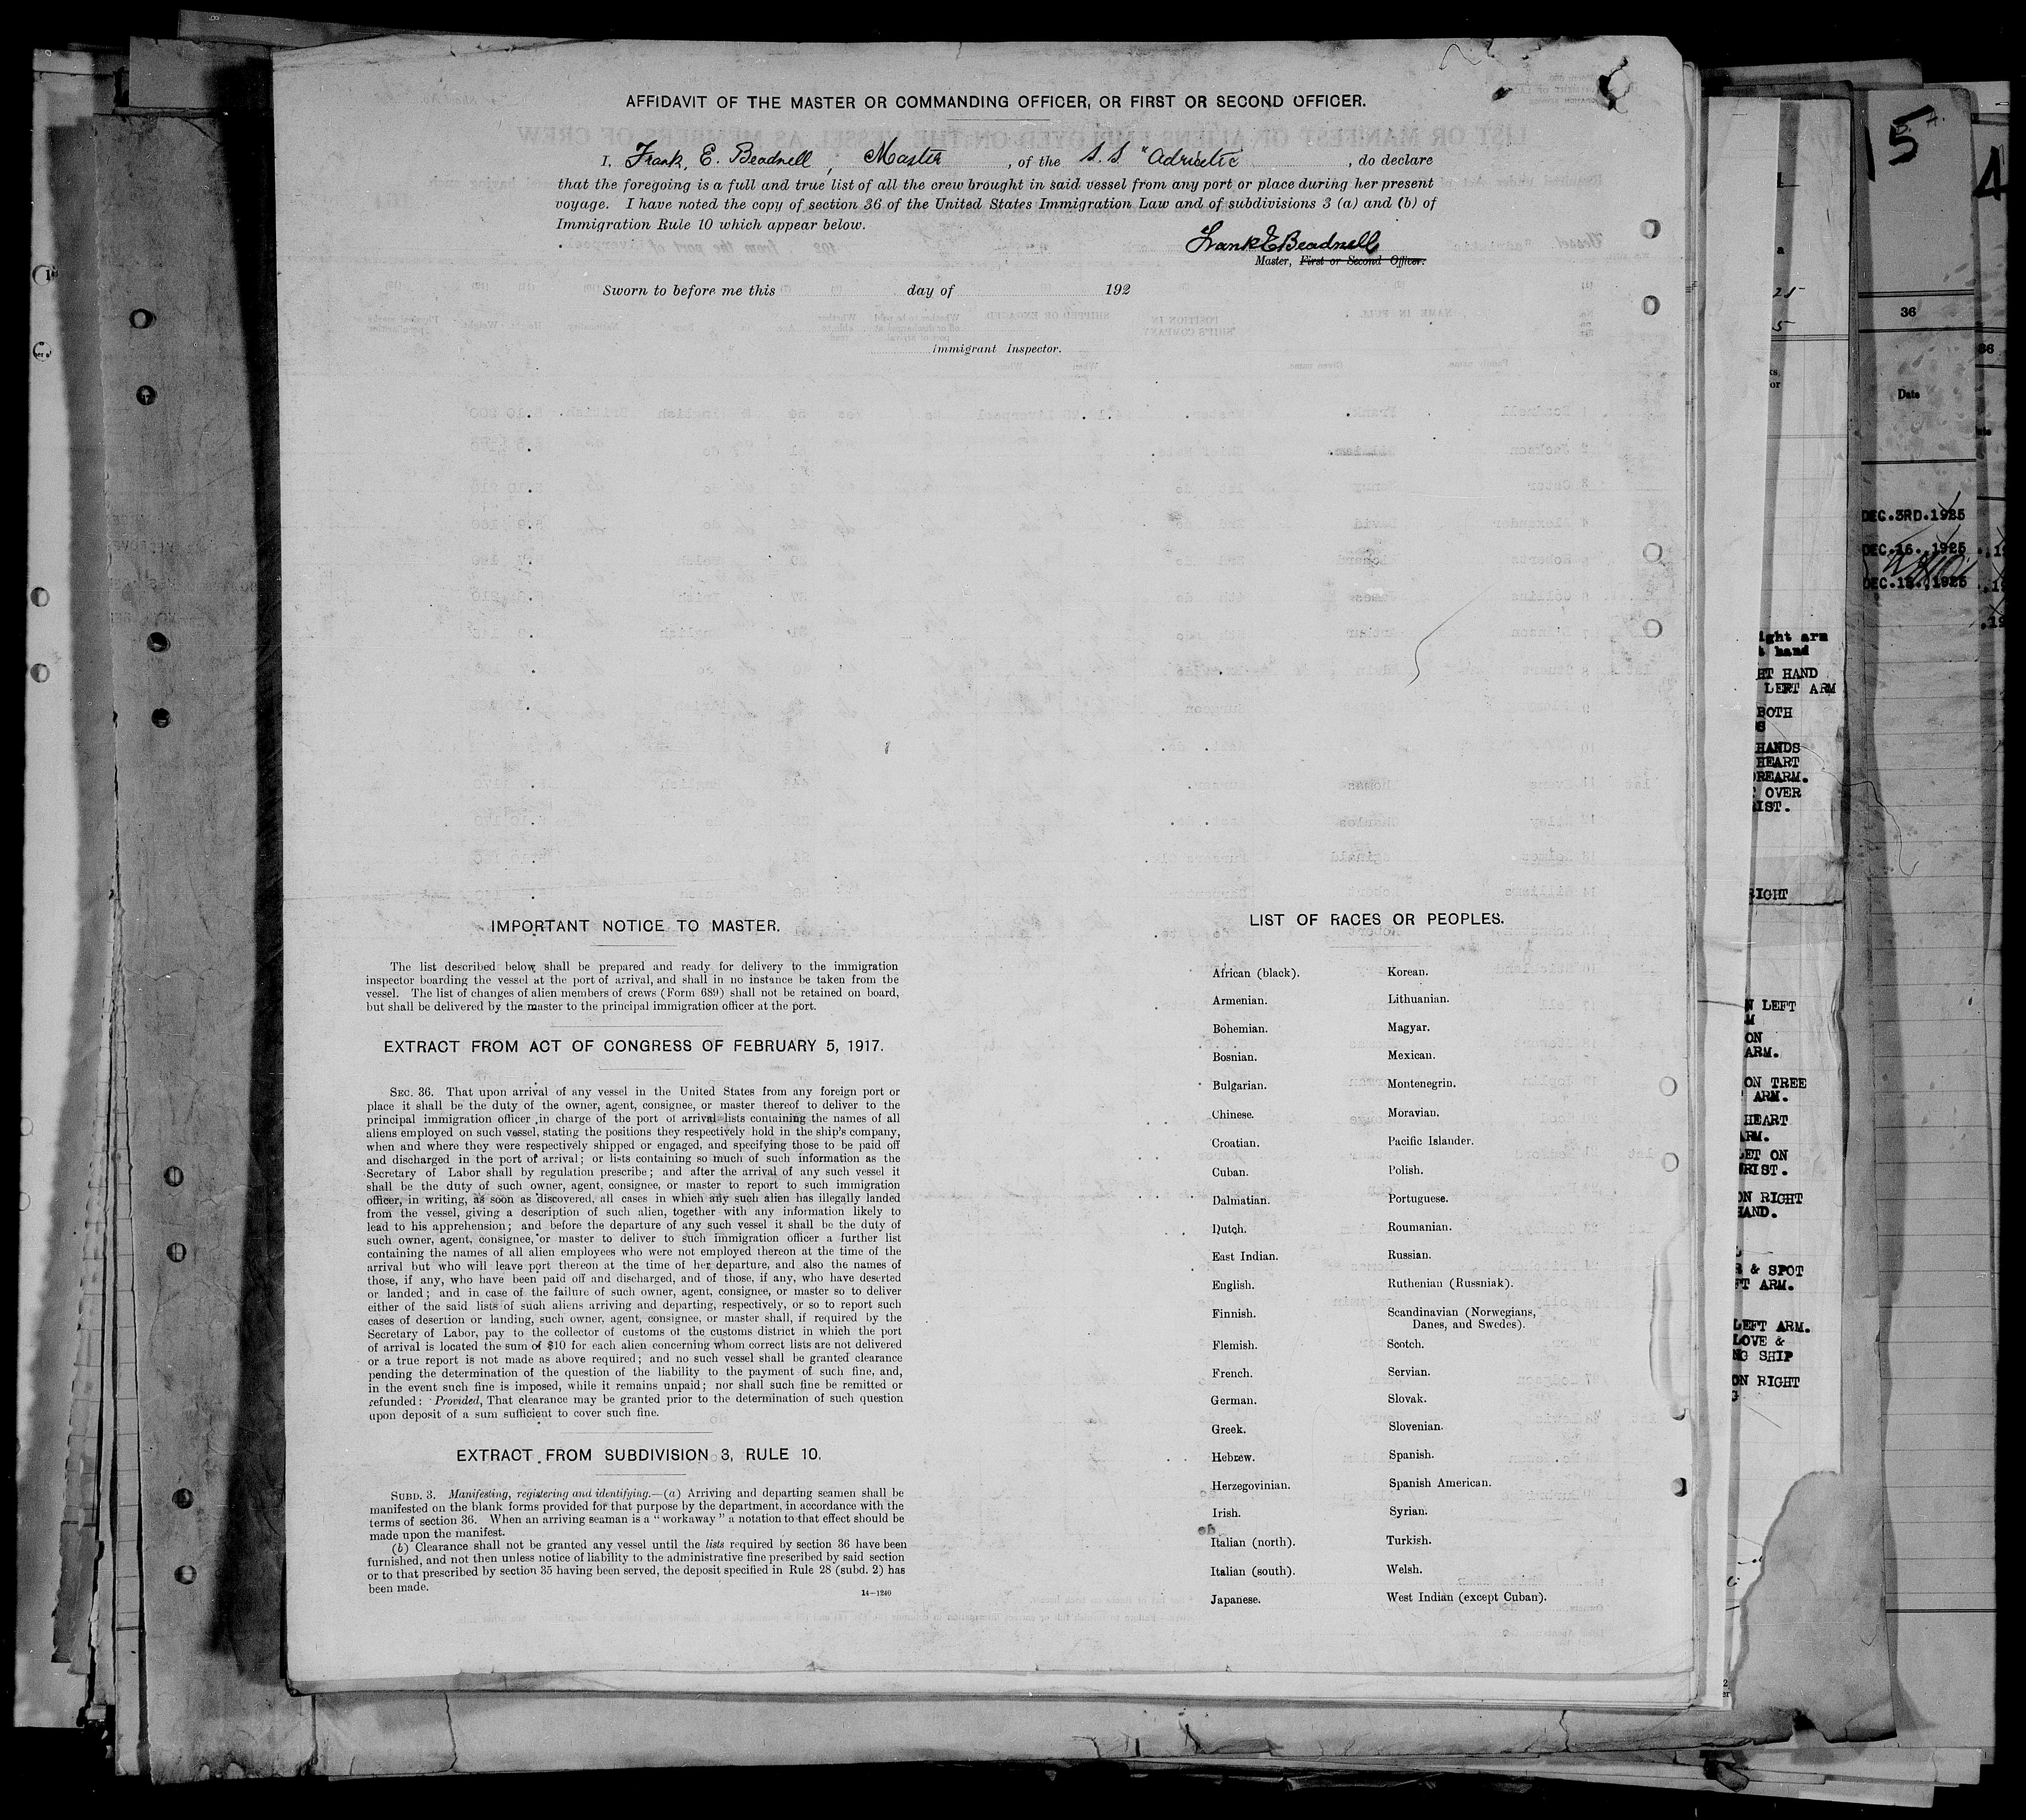 AFFIDAVIT OF THE MASTER OR COMMANDING OFFICER, OR FIRST OR SECOND OFFICER.
I, Frank, E. Beadnell, Master, of the S.S "Adriatic, do declare
that the foregoing is a full and true list of all the crew brought in said vessel from any port or place during her present
voyage. I have noted the copy of section 36 of the United States Immigration Law and of subdivisions 3 (a) and (b) of
Immigration Rule 10 which appear below.
Frank E Beadnell
Master, First or Second Officer.
Sworn to before me this day of 192
Immigrant Inspector.
IMPORTANT NOTICE TO MASTER.
The list described below shall be prepared and ready for delivery to the immigration
inspector boarding the vessel at the port of arrival, and shall in no instance be taken from the
vessel. The list of changes of alien members of crews (Form 689) shall not be retained on board,
but shall be delivered by the master to the principal immigration officer at the port.
EXTRACT FROM ACT OF CONGRESS OF FEBRUARY 5, 1917.
SEC. 36. That upon arrival of any vessel in the United States from any foreign port or
place it shall be the duty of the owner, agent, consignee, or master thereof to deliver to the
principal immigration officer in charge of the port of arrival lists containing the names of all
aliens employed on such vessel, stating the positions they respectively hold in the ship's company,
when and where they were respectively shipped or engaged, and specifying those to be paid off
and discharged in the port of arrival; or lists containing so much of such information as the
Secretary of Labor shall by regulation prescribe; and after the arrival of any such vessel it
shall be the duty of such owner, agent, consignee, or master to report to such immigration
officer, in writing, as soon as discovered, all cases in which any such alien has illegally landed
from the vessel, giving a description of such alien, together with any information likely to
lead to his apprehension; and before the departure of any such vessel it shall be the duty of
such owner, agent, consignee, or master to deliver to such immigration officer a further list
containing the names of all alien employees who were not employed thereon at the time of the
arrival but who will leave port thereon at the time of her departure, and also the names of
those, if any, who have been paid off and discharged, and of those, if any, who have deserted
or landed; and in case of the failure of such owner, agent, consignee, or master so to deliver
either of the said lists of such aliens arriving and departing, respectively, or so to report such
cases of desertion or landing, such owner, agent, consignee, or master shall, if required by the
Secretary of Labor, pay to the collector of customs of the customs district in which the port
of arrival is located the sum of $10 for each alien concerning whom correct lists are not delivered
or a true report is not made as above required; and no such vessel shall be granted clearance
pending the determination of the question of the liability to the payment of such fine, and,
in the event such fine is imposed, while it remains unpaid; nor shall such fine be remitted or
refunded: Provided, That clearance may be granted prior to the determination of such question
upon deposit of a sum sufficient to cover such fine.
EXTRACT FROM SUBDIVISION 3, RULE 10.
SUBD. 3. Manifesting, registering and identifying.—(a) Arriving and departing seamen shall be
manifested on the blank forms provided for that purpose by the department, in accordance with the
terms of section 36. When an arriving seaman is a "workaway" a notation to that effect should be
made upon the manifest.
(b) Clearance shall not be granted any vessel until the lists required by section 36 have been
furnished, and not then unless notice of liability to the administrative fine prescribed by said section
or to that prescribed by section 35 having been served, the deposit specified in Rule 28 (subd. 2) has
been made.
14—1240
LIST OF RACES OR PEOPLES.
African (black). Korean.
Armenian. Lithuanian.
Bohemian. Magyar.
Bosnian. Mexican.
Bulgarian. Montenegrin.
Chinese. Moravian.
Croatian. Pacific Islander.
Cuban. Polish.
Dalmatian. Portuguese.
Dutch. Roumanian.
East Indian. Russian.
English. Ruthenian (Russniak).
Finnish. Scandinavian (Norwegians,
Danes, and Swedes).
Flemish. Scotch.
French. Servian.
German. Slovak.
Greek. Slovenian.
Hebrew. Spanish.
Herzegovinian. Spanish American.
Irish. Syrian.
Italian (north). Turkish.
Italian (south). Welsh.
Japanese. West Indian (except Cuban).
HAND
LEFT ARM
BOTH
HANDS
HEART
OVER
LEFT
ON
ARM.
ON TREE
ARM.
HEART
ON
ON RIGHT
HAND.
& SPOT
ARM.
LEFT ARM.
LOVE &
SHIP
ON RIGHT
15
36
Date
DEC.3RD.1925
DEC.16.,1925
4
36